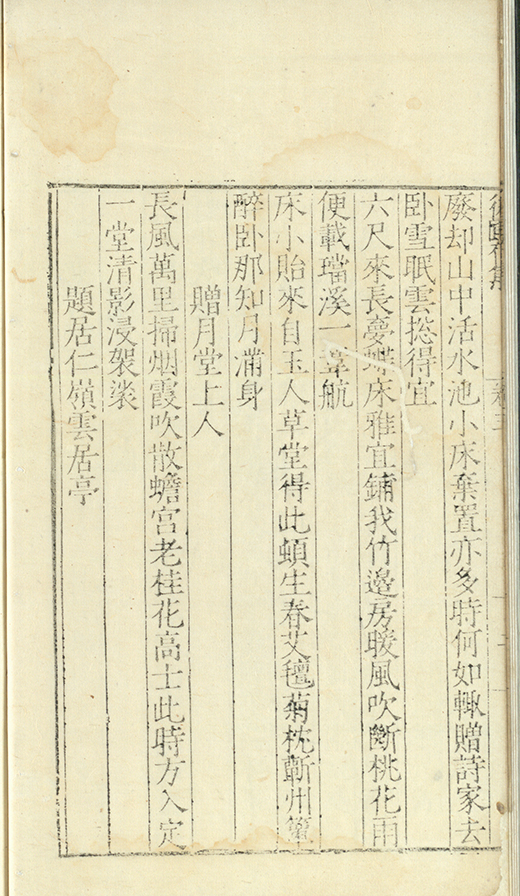 廢却山中活水池小床棄置亦多時何如輙贈詩家去
卧雪眠雲捴得宜
六尺來長夢蝶床雅宜鋪我竹邊房暖風吹斷桃花雨
便載璫溪一葦航
床小貽來自玉人草堂得此頓生春艾氊菊枕蘄州簟
醉卧那知月滿身
贈月堂上人
長風萬里掃烟霞吹散蟾宮老桂花高士此時方入定
一堂清影浸袈裟
題居仁嶺雲居亭